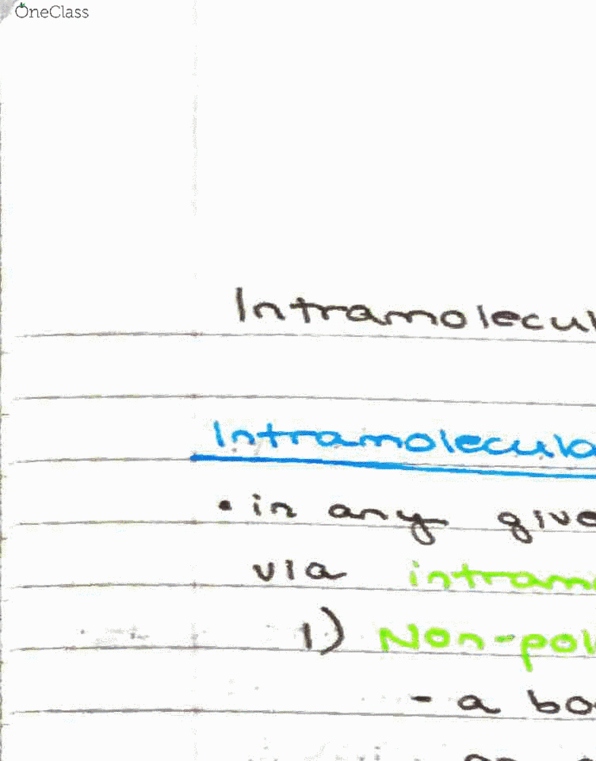 OneClass
Intramolecul
Intramolecula
• in any give
via intram
1) Non-pol
- a bo